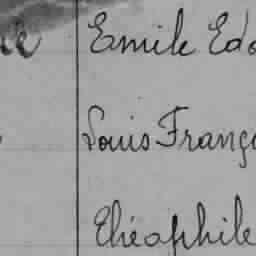 Emile Edo
Louis Franço
Théophile